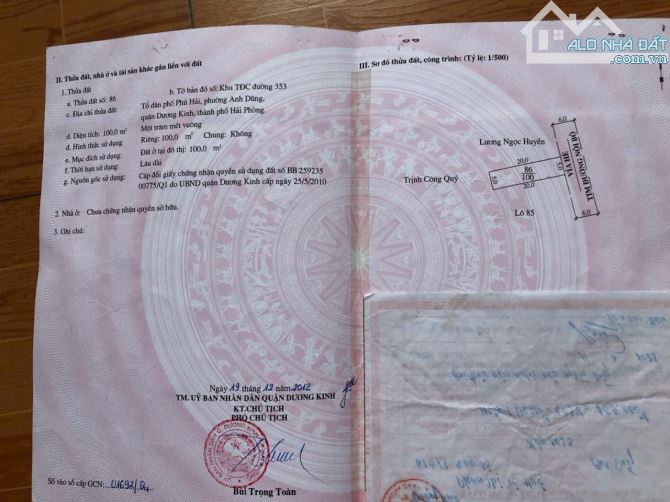 ALO NHÀ ĐẤT
.com.vn
II. Thửa đất, nhà ở và tài sản khác gắn liền với đất
1. Thửa đất
a. Thửa đất số: 86 b. Tờ bản đồ số: Khu TĐC đường 353
c. Địa chỉ thửa đất: Tổ dân phố Phú Hải, phường Anh Dũng,
quận Dương Kinh, thành phố Hải Phòng.
d. Diện tích: 100,0 m²
Một trăm mét vuông
đ. Hình thức sử dụng Riêng: 100,0 m² Chung: Không
e. Mục đích sử dụng: Đất ở tại đô thị: 100,0 m²
f. Thời hạn sử dụng: Lâu dài
g. Nguồn gốc sử dụng: Cấp đổi giấy chứng nhận quyền sử dụng đất số BB 259235
00775/Q1 do UBND quận Dương Kinh cấp ngày 25/5/2010
2. Nhà ở: Chưa chứng nhận quyền sở hữu.
3. Ghi chú:
Ngày 19 tháng 12 năm 2012
TM. UỶ BAN NHÂN DÂN QUẬN DƯƠNG KINH
KT.CHỦ TỊCH
PHÓ CHỦ TỊCH
Bùi Trọng Toàn
Số vào sổ cấp GCN:
III. Sơ đồ thửa đất, công trình: (Tỷ lệ: 1/500)
Lương Ngọc Huyền
6,0
20,0
Trịnh Công Quý
5,0
86
100
5,0
20,0
VỈA HÈ
TIM ĐƯỜNG NỘI BỘ
Lô 85
6,0